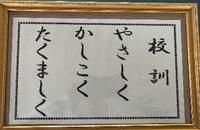 校訓
やさしく
かしこく
たくましく